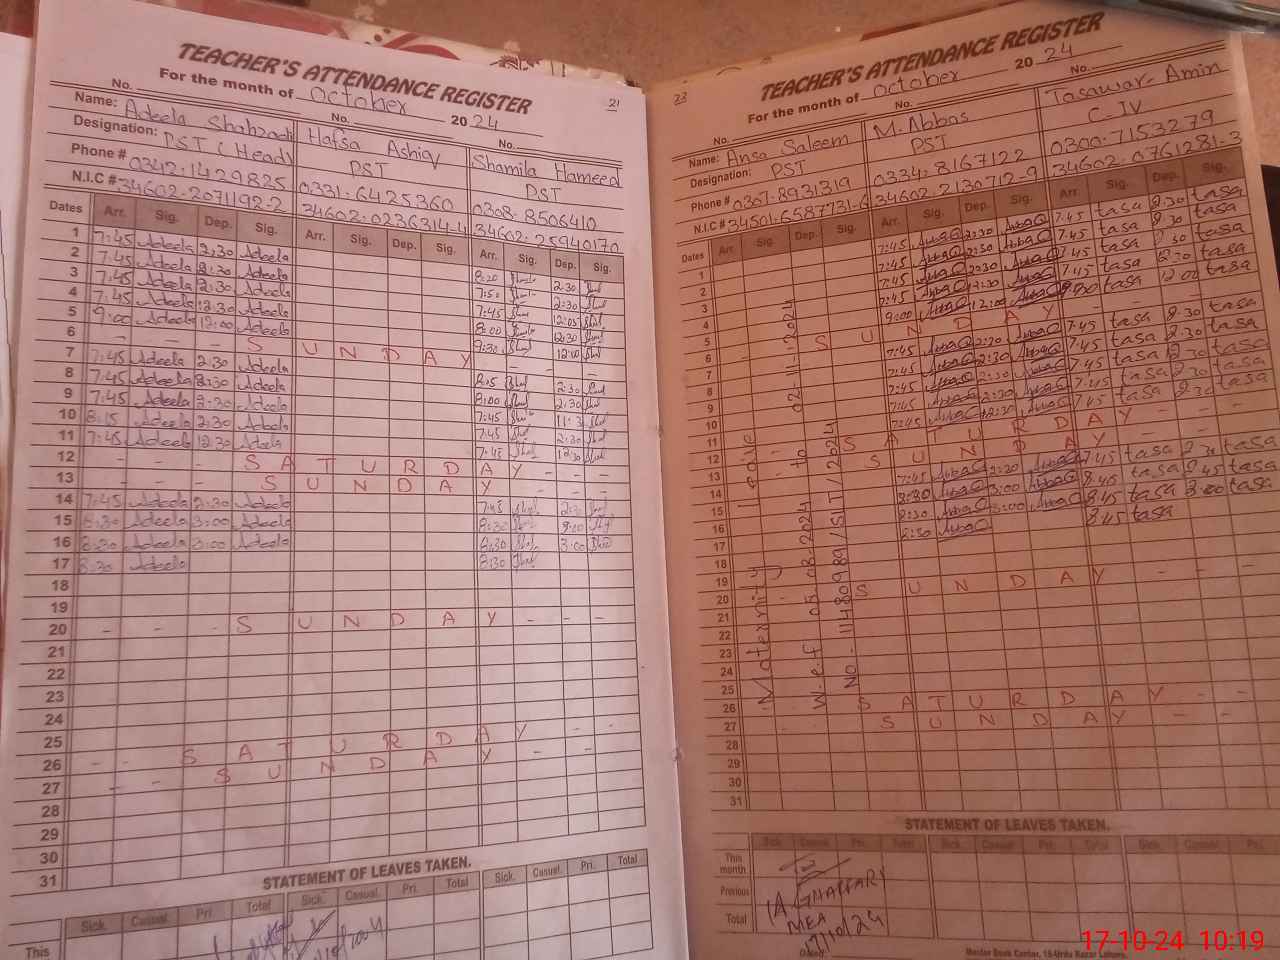 21
TEACHER'S ATTENDANCE REGISTER
For the month of October 2024
No. No. No.
Name: Adeela Shahzadi Hafsa Ashiq Shamila Hameed
Designation: PST (Head) PST PST
Phone # 0342.1429825 0331.6425360 0308.8506410
N.I.C # 34602.2071192.2 34602.0236314.4 34602.25940170
Dates Arr. Sig. Dep. Sig. Arr. Sig. Dep. Sig. Arr. Sig. Dep. Sig.
1 7:45 Adeela 2:30 Adeela 8:20 2:30
2 7:45 Adeela 2:30 Adeela 7:50 2:30
3 7:45 Adeela 2:30 Adeela 7:45 12:05
4 7:45 Adeela 12:30 Adeela 8:00 12:30
5 9:00 Adeela 12:00 Adeela 9:30 12:00
6 - - - S U N D A Y - - -
7 7:45 Adeela 2:30 Adeela 8:15 2:30
8 7:45 Adeela 2:30 Adeela 8:00 2:30
9 7:45 Adeela 2:30 Adeela 7:45
10 8:15 Adeela 2:30 Adeela 7:45 2:30
11 7:45 Adeela 12:30 Adeela 7:45 12:30
12 - - - S A T U R D A Y - - -
13 - - - S U N D A Y - - -
14 7:45 Adeela 2:30 Adeela 7:45 2:30
15 8:30 Adeela 3:00 Adeela 8:30
16 8:30 Adeela 3:00 Adeela 8:30 3:00
17 8:30 Adeela 8:30
18
19
20 - - - S U N D A Y - - -
21
22
23
24
25
26 - - S A T U R D A Y - -
27 - - S U N D A Y - -
28
29
30
31
STATEMENT OF LEAVES TAKEN.
Sick. Casual. Pri. Total Sick. Casual. Pri. Total Sick. Casual. Pri. Total
This
23
TEACHER'S ATTENDANCE REGISTER
For the month of October 2024
No. No. No.
Name: Ansa Saleem M. Abbas Tasawar Amin
Designation: PST PST C-IV
Phone # 0307.8931319 0334.8167122 0300.7153279
N.I.C # 34501.6587731.6 34602.2130712-9 34602.0761281.3
Dates Arr. Sig. Dep. Sig. Arr. Sig. Dep. Sig. Arr. Sig. Dep. Sig.
1 7:45 2:30 7.45 tasa 2.30 tasa
2 7:45 2:30 7.45 tasa 2.30 tasa
3 7:45 2:30 7.45 tasa 2.30 tasa
4 7:45 12:30 7.45 tasa 12.30 tasa
5 9:00 12:00 9.00 tasa 12.00 tasa
6 S U N D A Y - - -
7 7:45 2:30 7.45 tasa 2.30 tasa
8 7:45 2:30 7.45 tasa 2.30 tasa
9 7:45 2:30 7.45 tasa
10 7:45 2:30 7.45 tasa 2.30 tasa
11 7:45 12:30 7.45 tasa tasa
12 S A T U R D A Y - - -
13 S U N D A Y - - -
14 7:45 2:30 7.45 tasa 2.30 tasa
15 8:30 3:00 8.45 tasa tasa
16 8:30 3:00 8.45 tasa 3.00 tasa
17 8:30 8.45 tasa
18
19
20 S U N D A Y - - -
21
22
23
24
25
26 S A T U R D A Y - -
27 S U N D A Y - -
28
29
30
31
Maternity Leave
w.e.f 05.08.2024 to 02-11-2024
No. 11480989/SLT/2024
STATEMENT OF LEAVES TAKEN.
Sick. Casual. Pri. Total Sick. Casual. Pri. Total Sick. Casual. Pri. Total
This month
Previous
Total
A. GHAFFAR
MEA
17/10/24
Master Book Center, 18-Urdu Bazar Lahore.
17-10-24 10:19